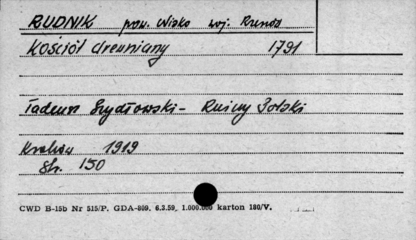 RUDNIK pow. Nisko woj. Rzesz
Kościół drewniany 1791
Tadeusz Szydłowski - Ruiny Polski
Kraków 1919
Str. 150
CWD B-15b Nr 515/P. GDA-809. 6.3.59. 1.000.000 karton 180/V.